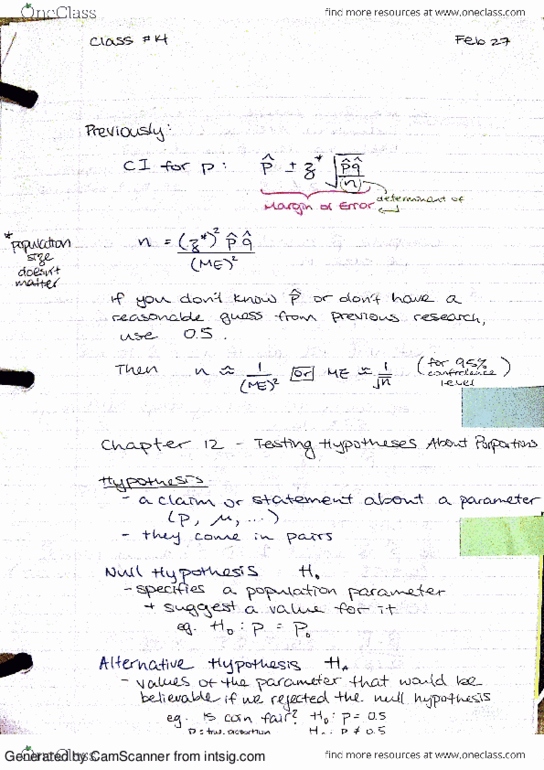 OneClass
find more resources at www.oneclass.com
Class #14
Feb 27
Previously:
CI for p: p̂ ± z* √(p̂q̂/(n))
Margin of Error
determinant of
*population
size
doesn't
matter
n = (z*)² p̂ q̂ / (ME)²
if you don't know p̂ or don't have a
reasonable guess from previous research,
use 0.5.
Then n ≈ 1/(ME)² or ME ≈ 1/√n (for 95%
confidence
level)
Chapter 12 - Testing Hypotheses About Proportions
Hypothesis
- a claim or statement about a parameter
(p, μ, ...)
- they come in pairs
Null Hypothesis H₀
- specifies a population parameter
+ suggest a value for it
eg. H₀ : p = p₀
Alternative Hypothesis Hₐ
- values of the parameter that would be
believable if we rejected the null hypothesis
eg. is coin fair? H₀ : p = 0.5
Hₐ : p ≠ 0.5
OneClass
Generated by CamScanner from intsig.com
find more resources at www.oneclass.com